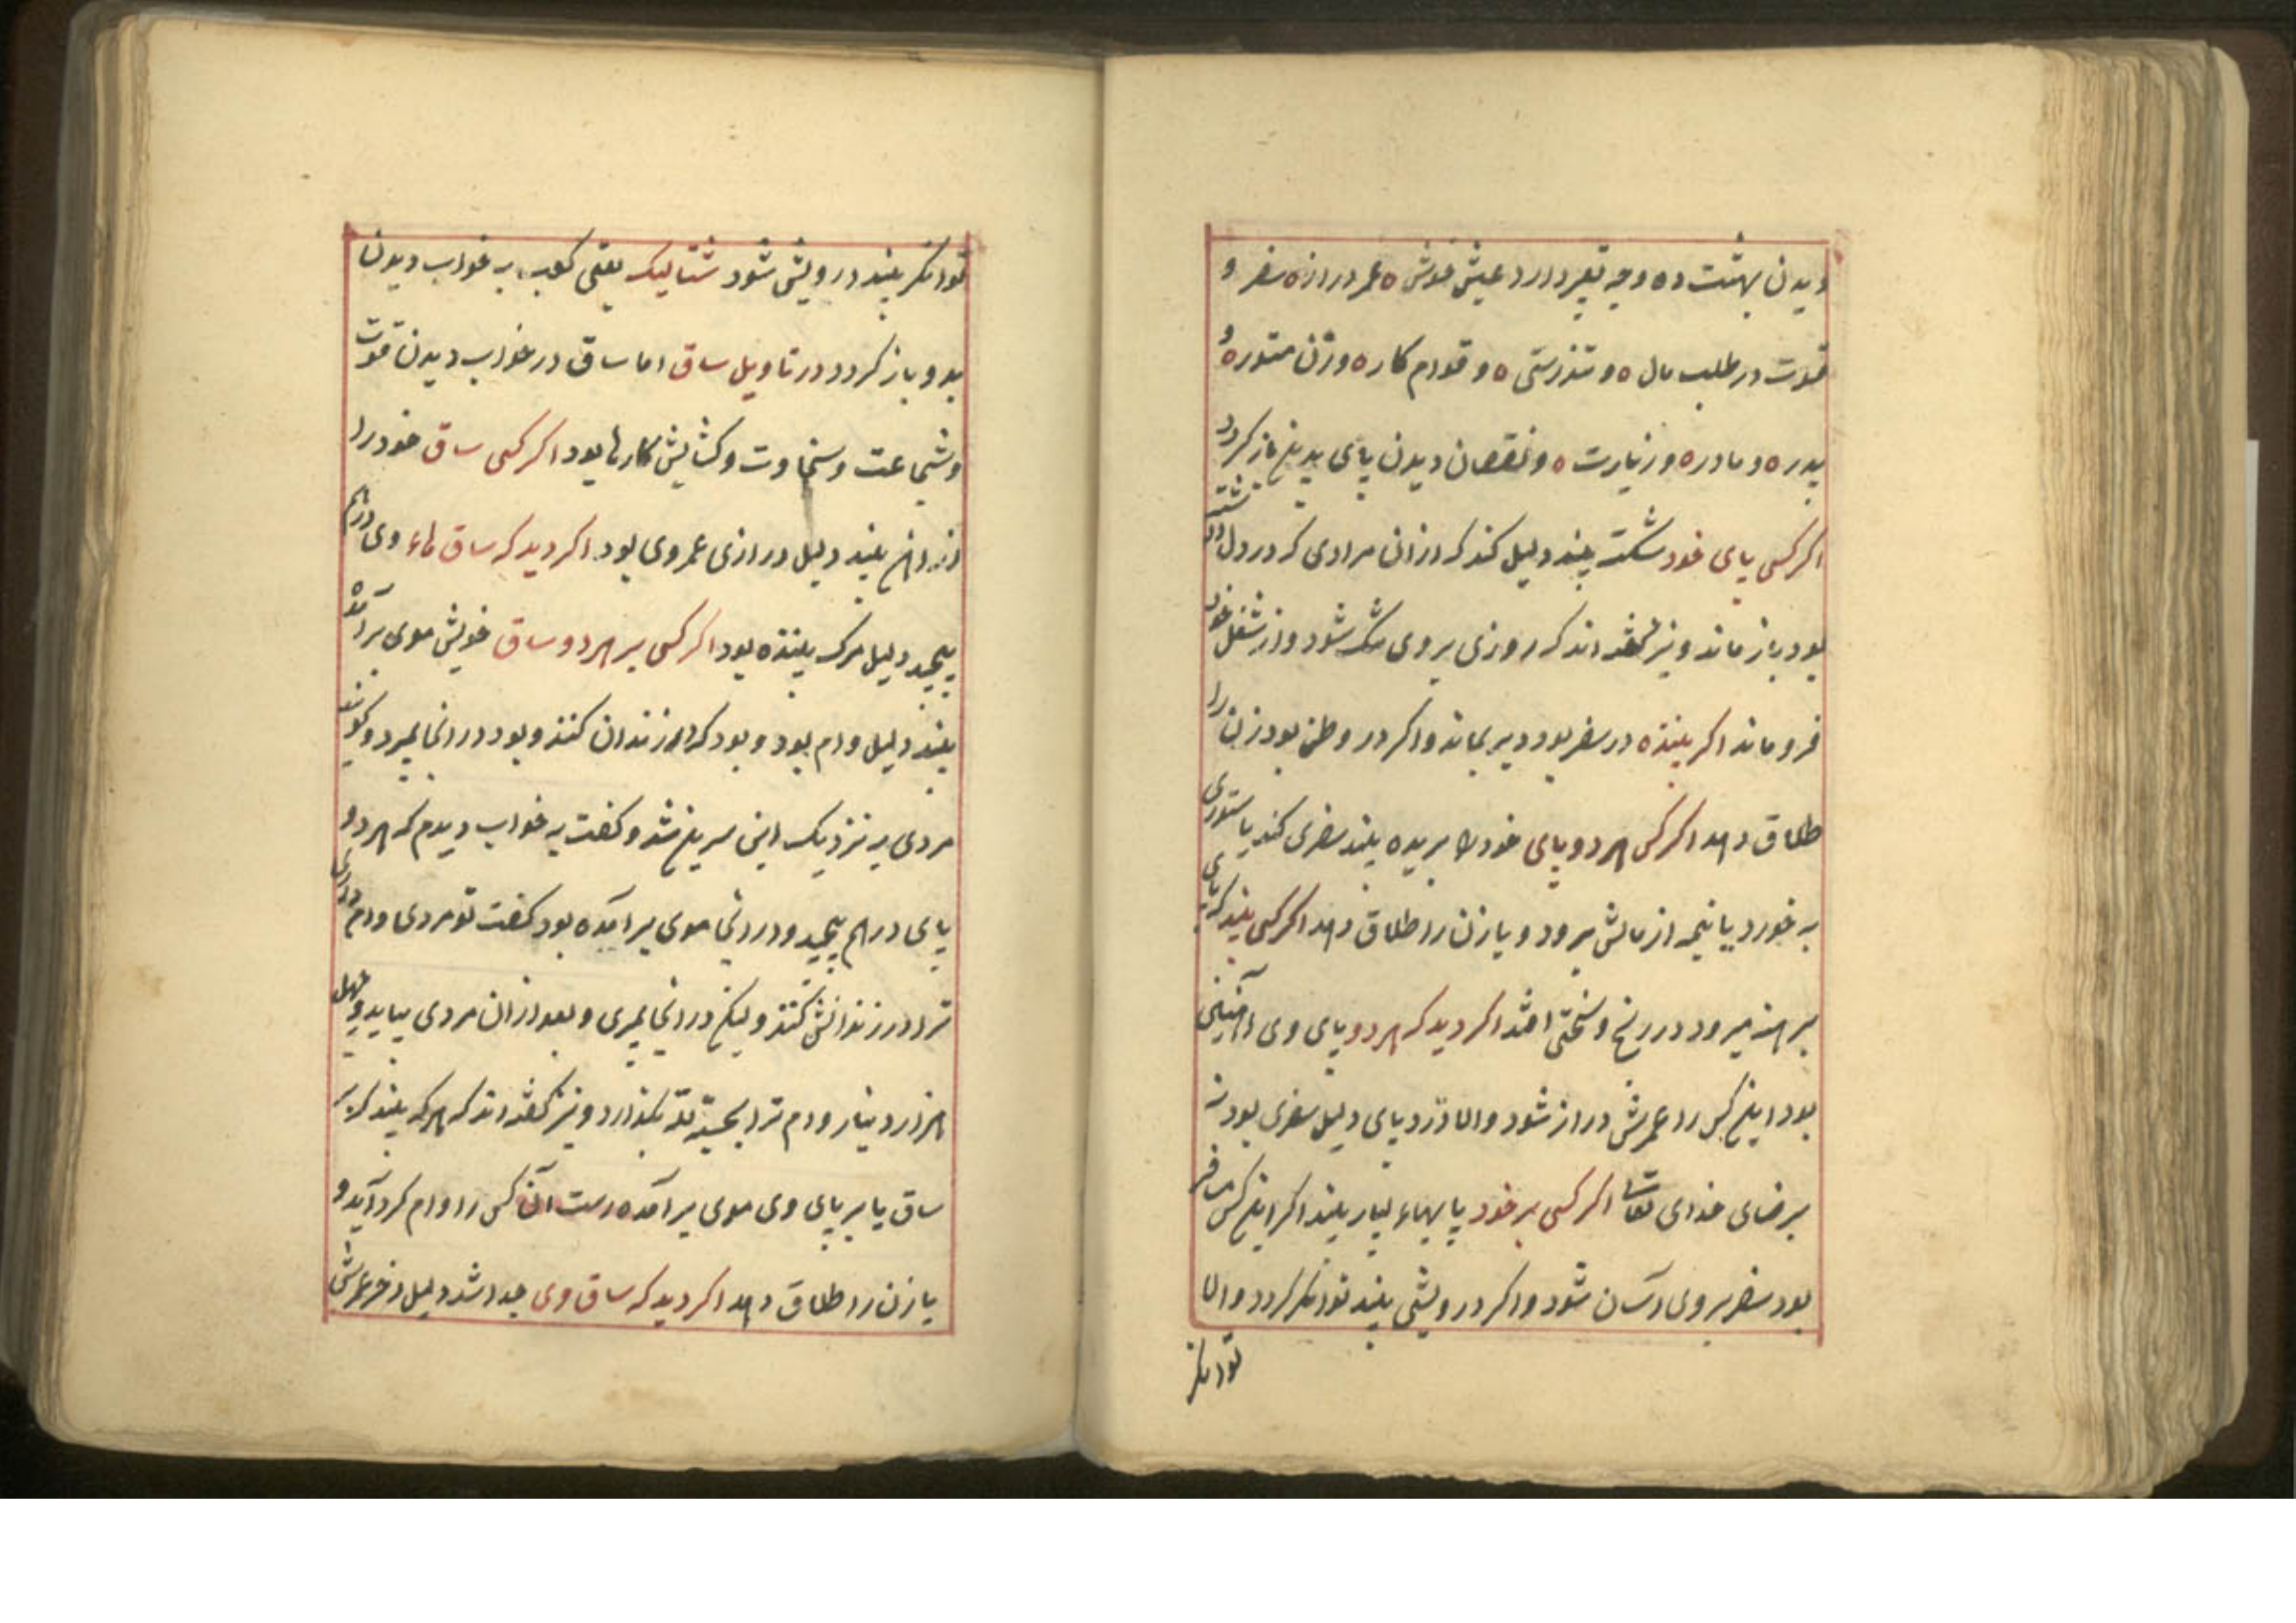 دیدن بهشت ده وجه تعبیر دارد عیش خوش ه عمر دراز ه سفر و
قوت در طلب مال ه و تندرستی ه و قوام کار ه و زن مستوره و
پدر ه و مادر ه و زیارت ه و نقصان دیدن پای بدین باز کردد
اکر کسی پای خود شکسته بیند دلیل کند که از ان مرادی که در دل داشته
بود باز ماند و نیز کفته اند که روزی بر وی تنک شود و از شغل خود
فرو ماند اکر بیننده در سفر بود دیر بماند و اکر در وطن بود زن را
طلاق دهد اکر کسی هر دو پای خود را بریده بیند سفری کند یا ستوری
به خورد یا نیمه از مالش برود و یا زن را طلاق دهد اکر کسی بیند که پای
برهنه میرود در رنج و سختی افتد اکر دید که هر دو پای وی آهنین
بود اینکس را عمرش دراز شود والا درد پای دلیل سفری بود نه
برضای خدای تعالی اکر کسی بر خود پایهاء بسیار بیند اکر اینکس مسافر
بود سفر بر وی آسان شود و اکر درویشی بیند توانکر کردد والا
توانکر
توانکر بیند درویش شود شتالیک یعنی کعب، به خواب دیدن
بدو باز کردد در تاویل ساق اما ساق در خواب دیدن قوت
و شجاعت و سخاوت و کشایش کارها بود اکر کسی ساق خود را
از آهن بیند دلیل درازی عمر وی بود اکر دید که ساق هاء وی درهم
پیچید دلیل مرک بیننده بود اکر کسی بر هر دو ساق خویش موی بر آمده
بیند دلیل وام بود و بود که در زندان کنند و بود در انجا بمیرد و کویند
مردی به نزدیک ابن سیرین شد و کفت به خواب دیدم که هر دو
پای در هم پیچید و در انجا موی بر آمده بود کفت تو مردی وام داری
ترا در زندانش کنند و لیکن در انجا بمیری و بعد از ان مردی بیاید و چهل
هزار دینار وام ترا بحسبة لله بکذارد و نیز کفته اند که هر که بیند که بر
ساق یا بر پای وی موی بر آمده است آن کس را وام کرد آید و
یا زن را طلاق دهد اکر دید که ساق وی جدا شد دلیل آخر عمرش